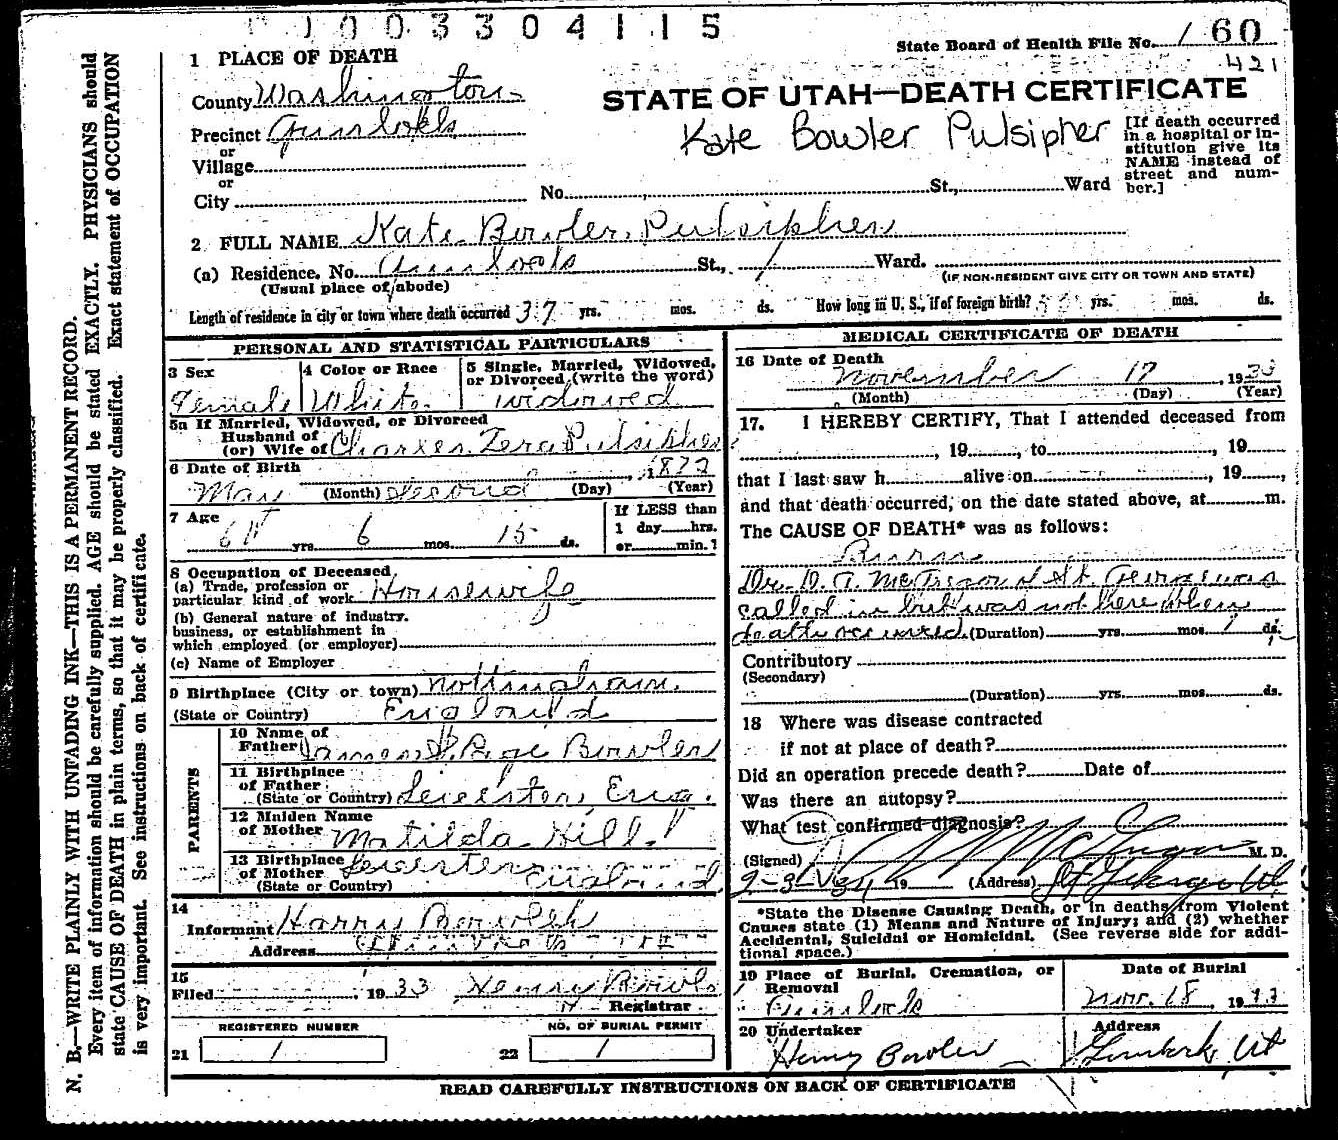 1003304115
State Board of Health File No. 160
421
1 PLACE OF DEATH
County Washington
STATE OF UTAH—DEATH CERTIFICATE
Precinct Gunlock
Kate Bowler Pulsipher
[If death occurred in a hospital or institution give its NAME instead of street and number.]
or
Village
or
City No. St., Ward
2 FULL NAME Kate Bowler Pulsipher
(a) Residence. No. St., 1 Ward.
(Usual place of abode) (IF NON-RESIDENT GIVE CITY OR TOWN AND STATE)
Length of residence in city or town where death occurred 37 yrs. mos. ds. How long in U. S., if of foreign birth? yrs. mos. ds.
PERSONAL AND STATISTICAL PARTICULARS
3 Sex
Female
4 Color or Race
White
5 Single, Married, Widowed,
or Divorced (write the word)
widowed
5a If Married, Widowed, or Divorced
Husband of
(or) Wife of Charles Zera Pulsipher
6 Date of Birth
May (Month) second (Day) 1872 (Year)
7 Age
61 yrs. 6 mos. 15 ds.
If LESS than
1 day hrs.
or min.?
8 Occupation of Deceased
(a) Trade, profession or
particular kind of work Housewife
(b) General nature of industry.
business, or establishment in
which employed (or employer)
(c) Name of Employer
9 Birthplace (City or town) Nottingham.
(State or Country) England
PARENTS
10 Name of
Father James Bowler
11 Birthplace
of Father
(State or Country) Eng.
12 Maiden Name
of Mother Matilda Hill
13 Birthplace
of Mother
(State or Country) England
14
Informant Harry Bowler
Address
15
Filed , 1933 Henry Bowler
Registrar
REGISTERED NUMBER
21 1
NO. OF BURIAL PERMIT
22 1
MEDICAL CERTIFICATE OF DEATH
16 Date of Death
November 17 , 1933
(Month) (Day) (Year)
17. I HEREBY CERTIFY, That I attended deceased from
, 19 , to , 19
that I last saw h alive on , 19 ,
and that death occurred, on the date stated above, at m.
The CAUSE OF DEATH* was as follows:
Burn
Dr. D. A. McGregor of St. George was
called in but was not here when
death occurred. (Duration) yrs. mos. 1 ds.
Contributory
(Secondary)
(Duration) yrs. mos. ds.
18 Where was disease contracted
if not at place of death?
Did an operation precede death? Date of
Was there an autopsy?
What test confirmed diagnosis?
(Signed) McGregor M. D.
2-3-34 19 (Address) St George Ut
*State the Disease Causing Death, or in deaths from Violent
Causes state (1) Means and Nature of Injury; and (2) whether
Accidental, Suicidal or Homicidal. (See reverse side for addi-
tional space.)
19 Place of Burial, Cremation, or
Removal
Gunlock
Date of Burial
Nov. 18, 1933
20 Undertaker
Henry Bowler
Address
Gunlock, Ut
READ CAREFULLY INSTRUCTIONS ON BACK OF CERTIFICATE
N. B.—WRITE PLAINLY WITH UNFADING INK—THIS IS A PERMANENT RECORD.
Every item of information should be carefully supplied. AGE should be stated EXACTLY. PHYSICIANS should
state CAUSE OF DEATH in plain terms, so that it may be properly classified. Exact statement of OCCUPATION
is very important. See instructions on back of certificate.